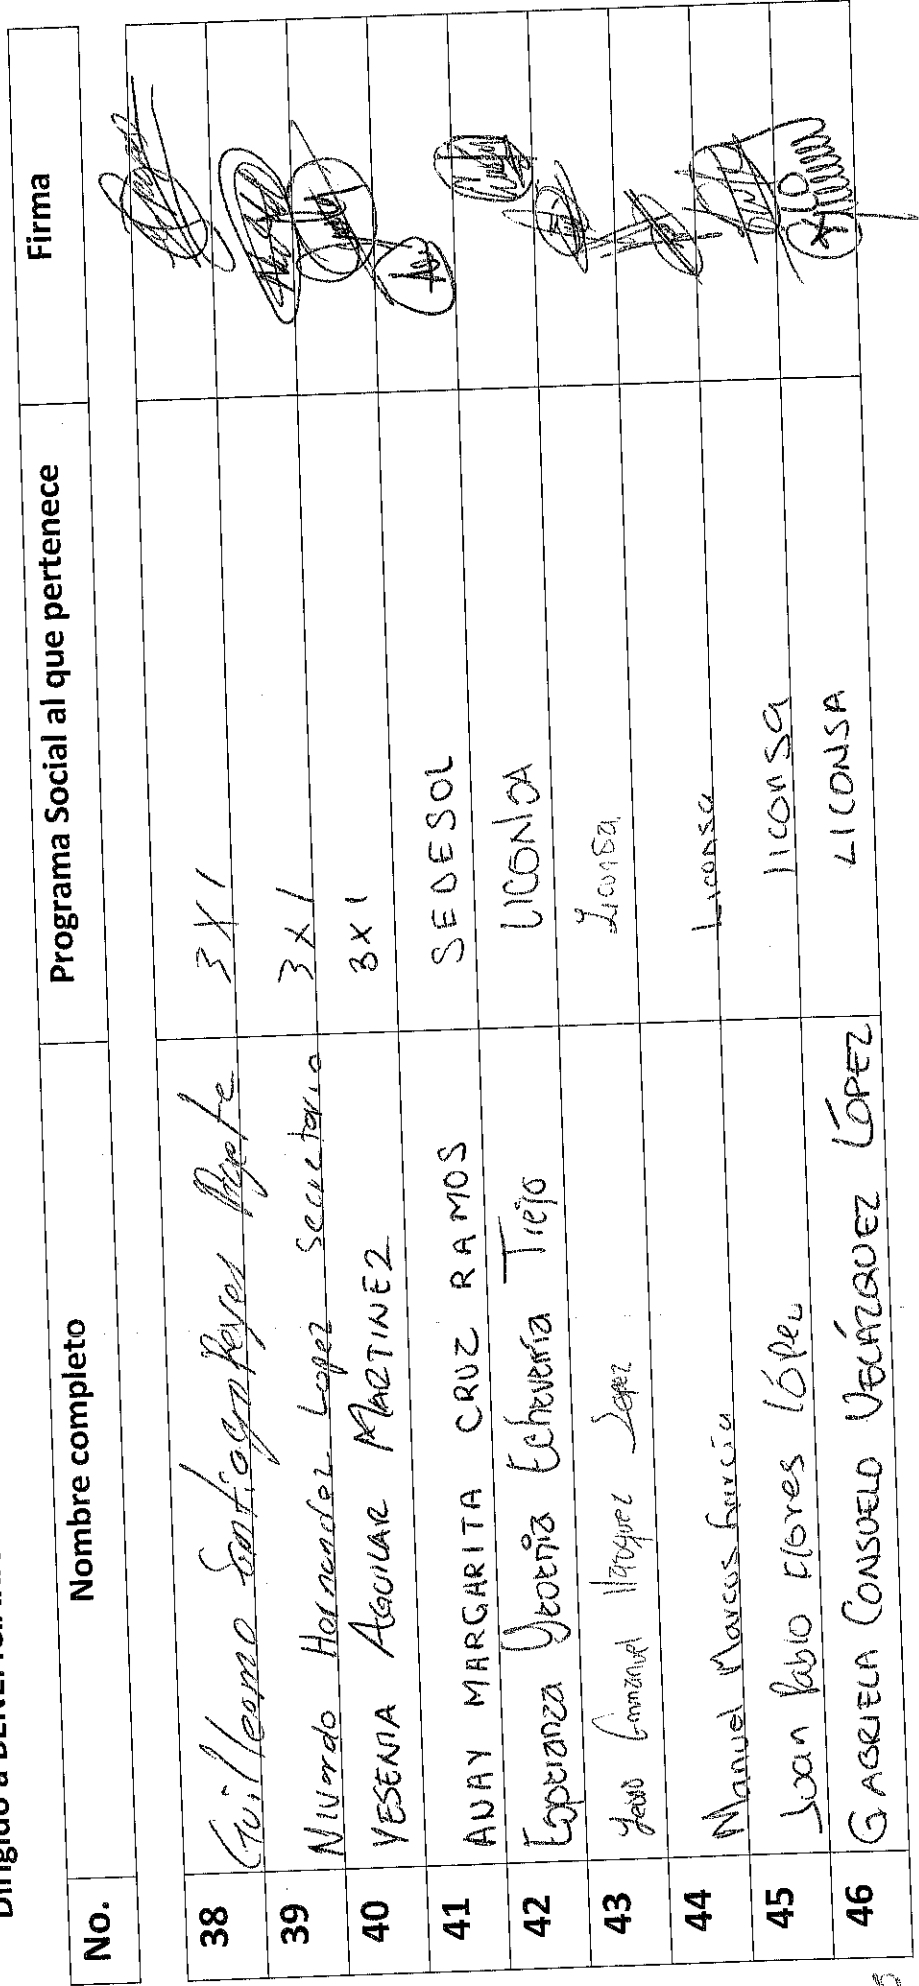 No. Nombre completo Programa Social al que pertenece Firma
38 Guillermo Santiago Reyes 3X1
39 Nivardo Hernandez Lopez Secretario 3X1
40 YESENIA AGUILAR MARTINEZ 3X1
41 ANAY MARGARITA CRUZ RAMOS SEDESOL
42 Esperanza Yesenia Echeverría Trejo LICONSA
43 Emmanuel Vazquez Lopez Liconsa
44 Manuel Marcos García Liconsa
45 Juan Pablo Flores López liconsa
46 GABRIELA CONSUELO VELÁZQUEZ LÓPEZ LICONSA